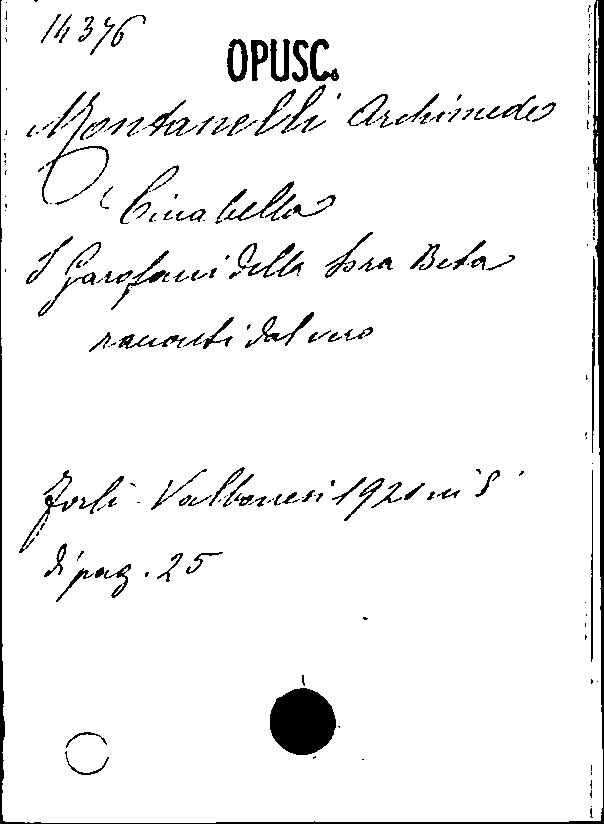 14376
OPUSC.
Montanelli Archimede
Cina bella
I Garofani della Sora Beta
racconti dal vero
Forlì - Valbonesi 1921 in 8°
di pag. 25